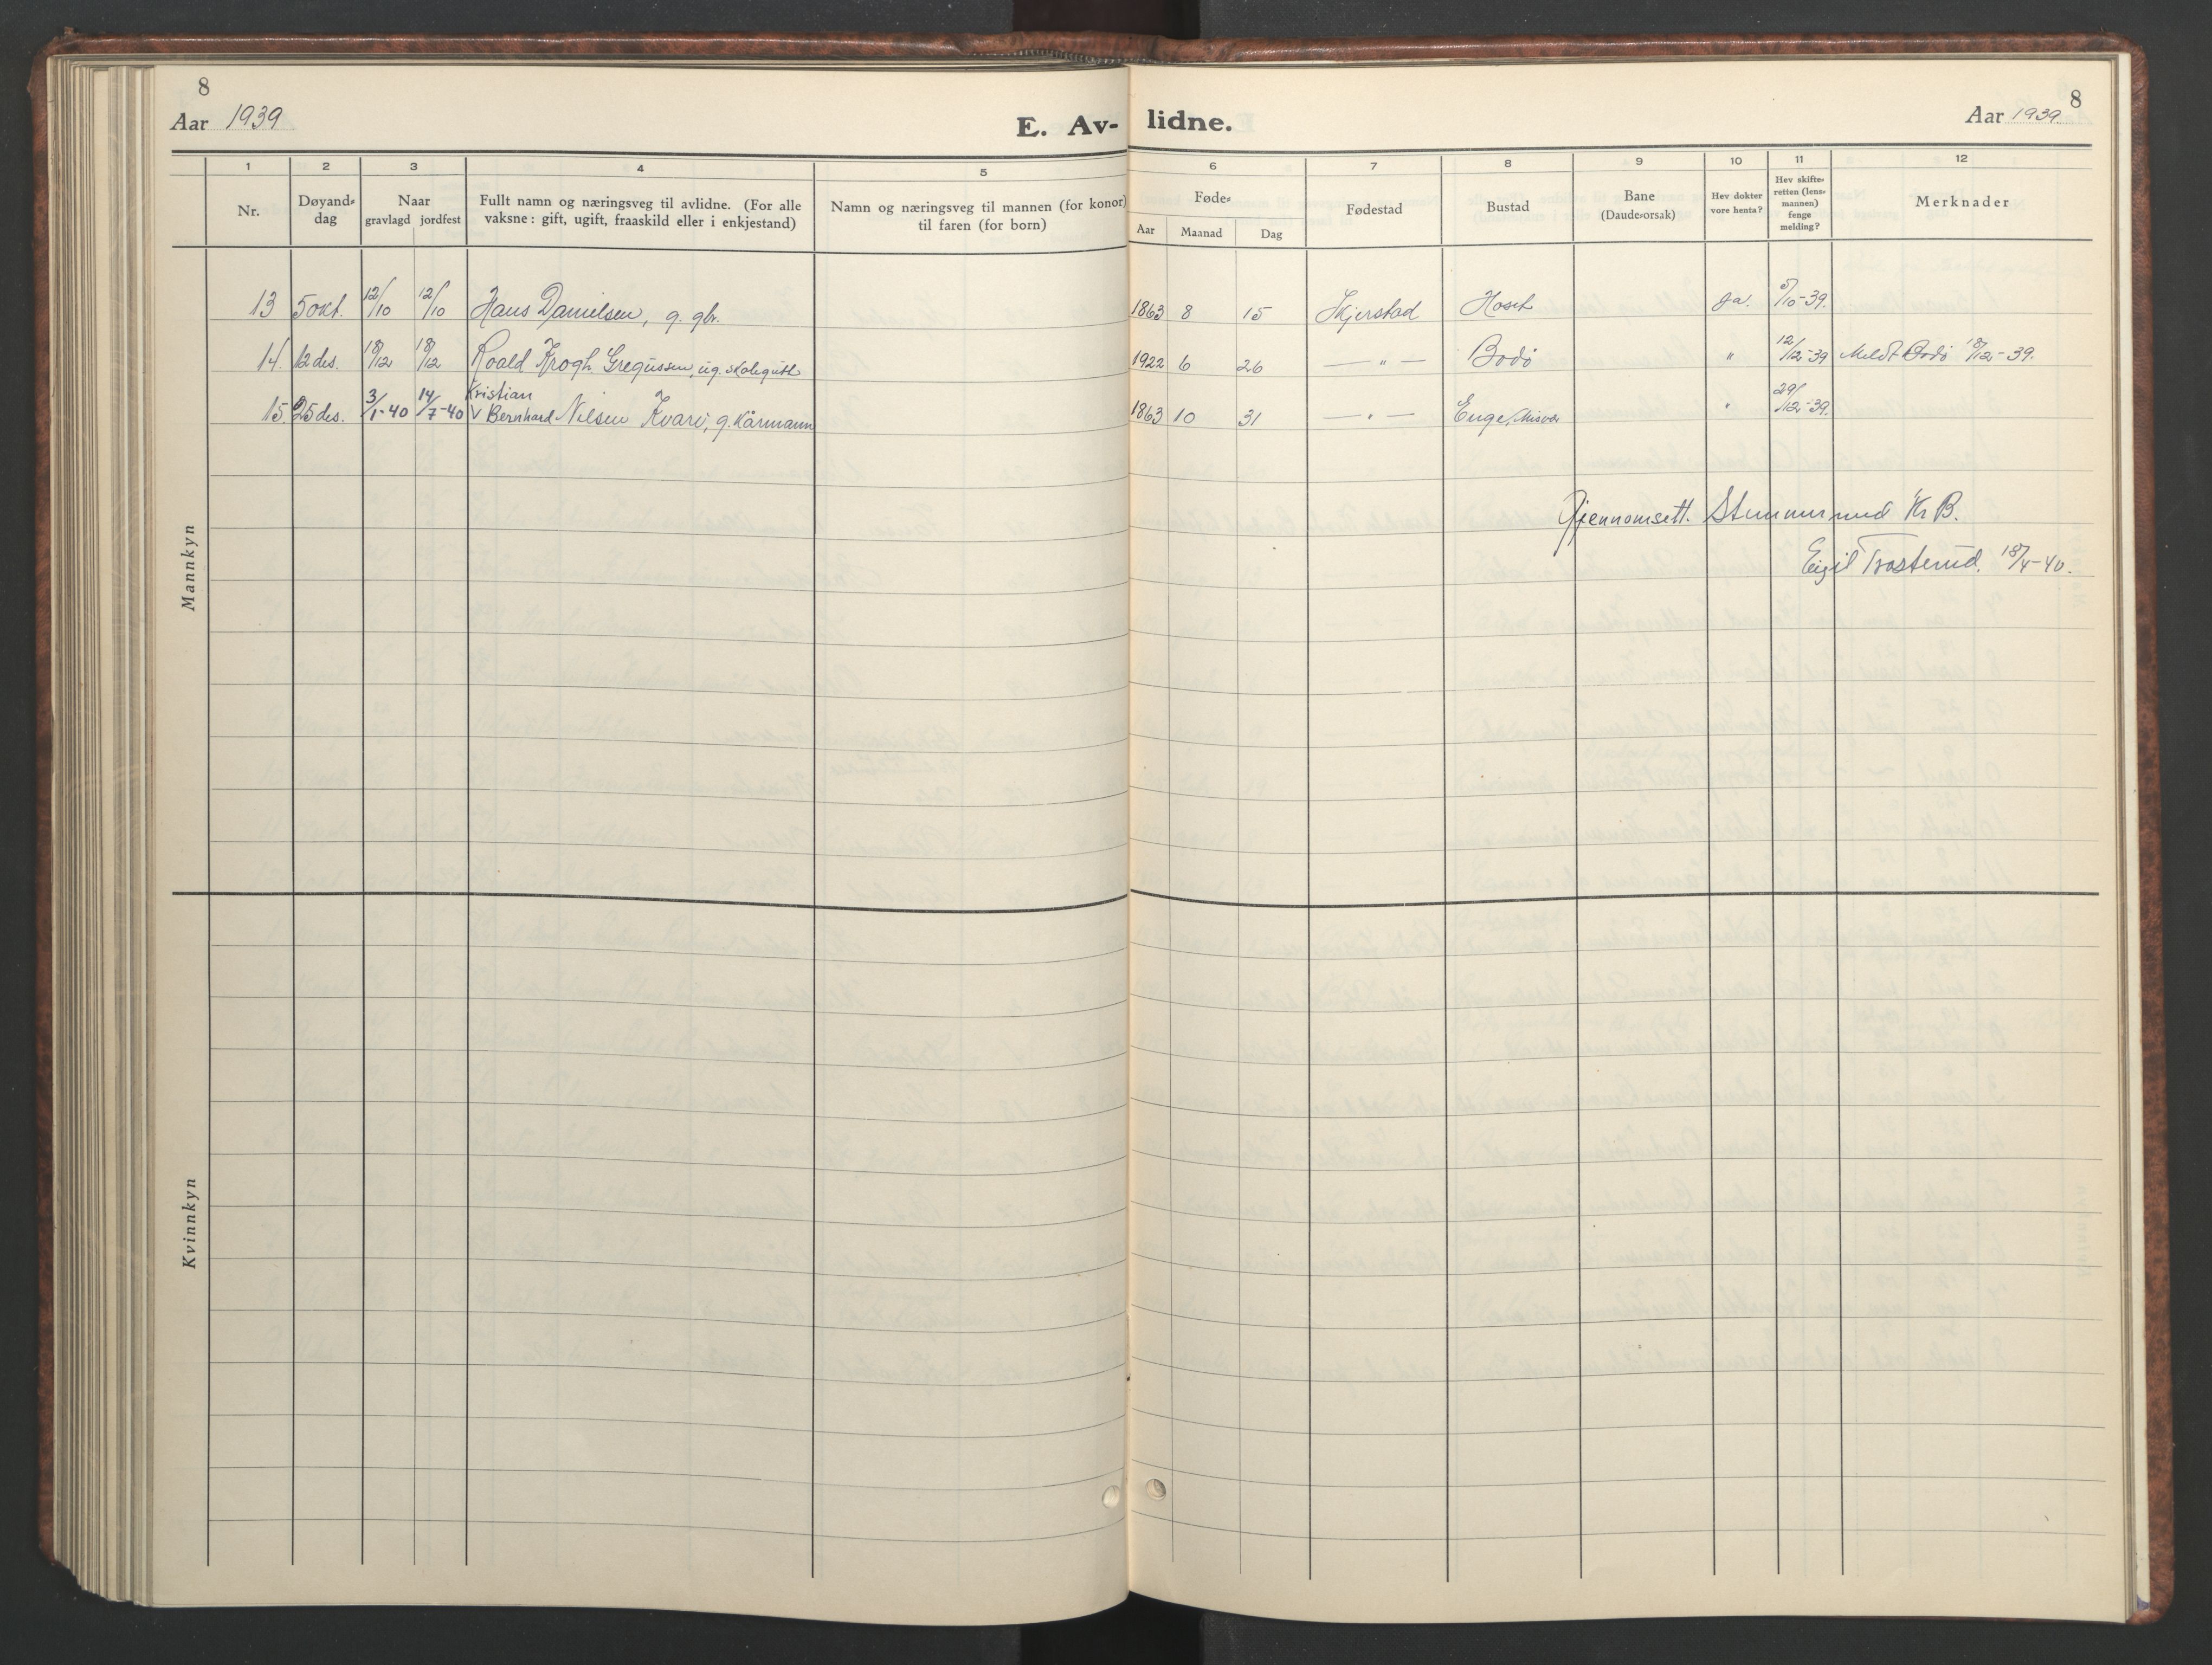 8
8
Aar 1939
E. Av-lidne.
Aar 1939
1 2 3 4 5 6 7 8 9 10 11 12
Nr.
Døyand-dag
Naar gravlagd jordfest
Fullt namn og næringsveg til avlidne. (For alle vaksne: gift, ugift, fraaskild eller i enkjestand)
Namn og næringsveg til mannen (for konor) til faren (for born)
Føde-
Aar Maanad Dag
Fødestad
Bustad
Bane (Daude-orsak)
Hev dokter vore henta?
Hev skifte-retten (lens-mannen) fenge melding?
Merknader
Mannkyn
13 5 okt. 12/10 12/10 Hans Danielsen, g. gbr. 1863 8 15 Skjerstad Hoset Ja. 5/10-39.
14. 12 des. 18/12 18/12 Roald Krogh Gregussen, ug. skolegutt 1922 6 26 — " — Bodø " 12/12-39 Meldt Bodø 18/12-39.
Kristian
15. 25 des. 3/1-40 14/7-40 V Bernhard Nilsen Kvarv, g. kårmann 1863 10 31 — " — Enge, Misvær " 29/12-39.
Gjennomsett. Stemmer med Kr B.
Eigil Trosterud. 18/4-40.
Kvinnkyn